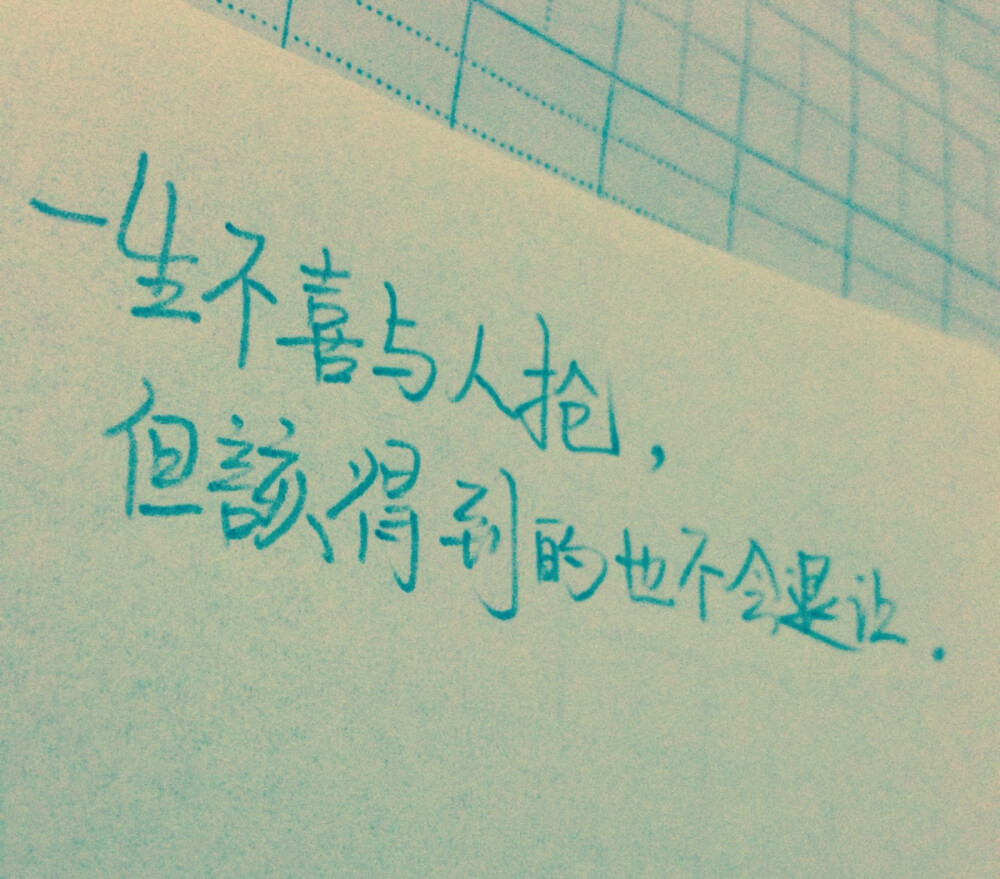 一生不喜与人抢，
但該得到的也不会退让.